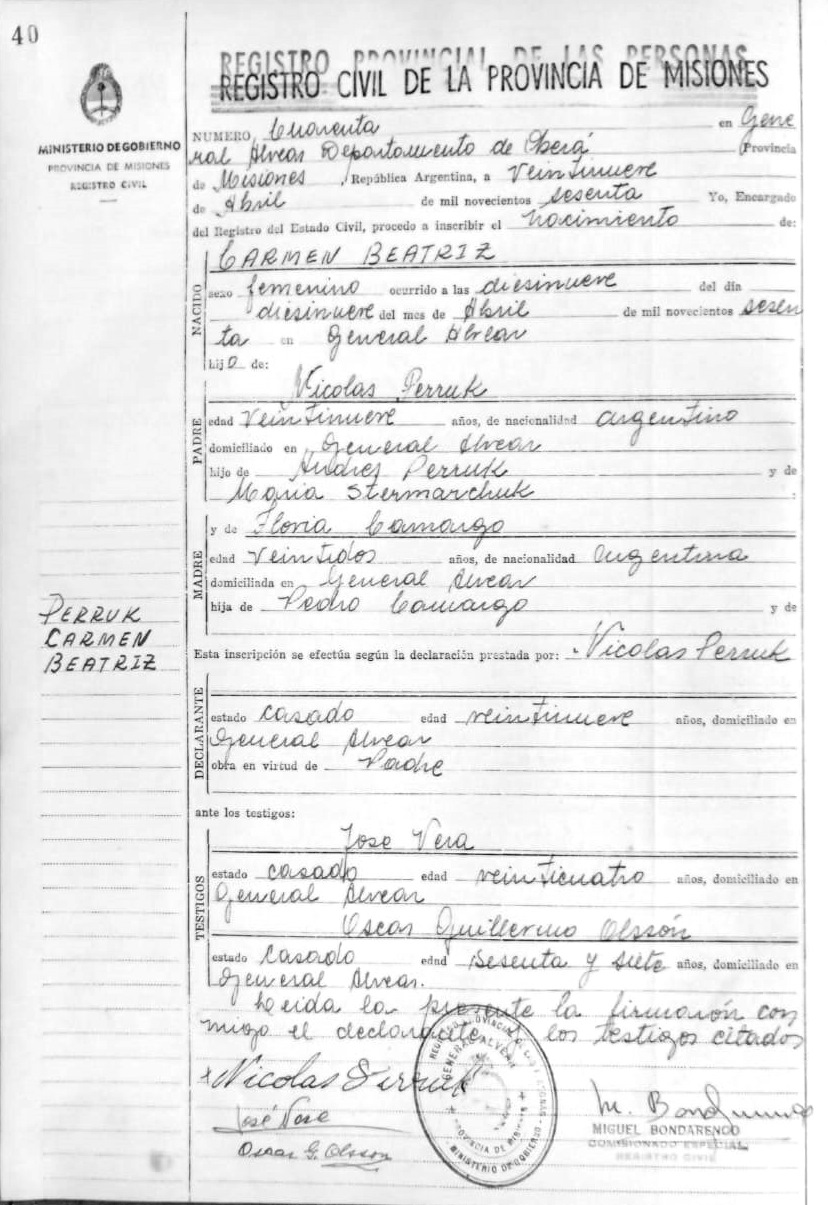 40
MINISTERIO DE GOBIERNO
PROVINCIA DE MISIONES
REGISTRO CIVIL
REGISTRO PROVINCIAL DE LAS PERSONAS
REGISTRO CIVIL DE LA PROVINCIA DE MISIONES
NUMERO Cuarenta en Gene
ral Alvear Departamento de Oberá (Provincia
de Misiones, República Argentina, a veintinueve
de Abril de mil novecientos sesenta Yo, Encargado
del Registro del Estado Civil, procedo a inscribir el nacimiento de:
NACIDO
CARMEN BEATRIZ
sexo femenino ocurrido a las diesinueve del día
diesinueve del mes de Abril de mil novecientos sesen
ta en General Alvear
hija de:
PADRE
Nicolas Perruk
edad veintinueve años, de nacionalidad argentino
domiciliado en General Alvear
hijo de Andres Perruk y de
Maria Stermarchuk
MADRE
y de Floria Camargo
edad veintidos años, de nacionalidad argentina
domiciliada en General Alvear
hija de Pedro Camargo y de
PERRUK
CARMEN
BEATRIZ
Esta inscripción se efectúa según la declaración prestada por: Nicolas Perruk
DECLARANTE
estado casado edad veintinueve años, domiciliado en
General Alvear
obra en virtud de Padre
ante los testigos:
TESTIGOS
Jose Vera
estado casado edad veinticuatro años, domiciliado en
General Alvear
Oscar Guillermo Olssón
estado casado edad sesenta y siete años, domiciliado en
General Alvear.
Leida la presente la firmarón con
migo el declarante los testigos citados
Nicolas Perruk
José Vera
Oscar G. Olsson
GENERAL ALVEAR
PROVINCIA DE MISIONES
MINISTERIO DE GOBIERNO
MIGUEL BONDARENCO
COMISIONADO ESPECIAL
REGISTRO CIVIL